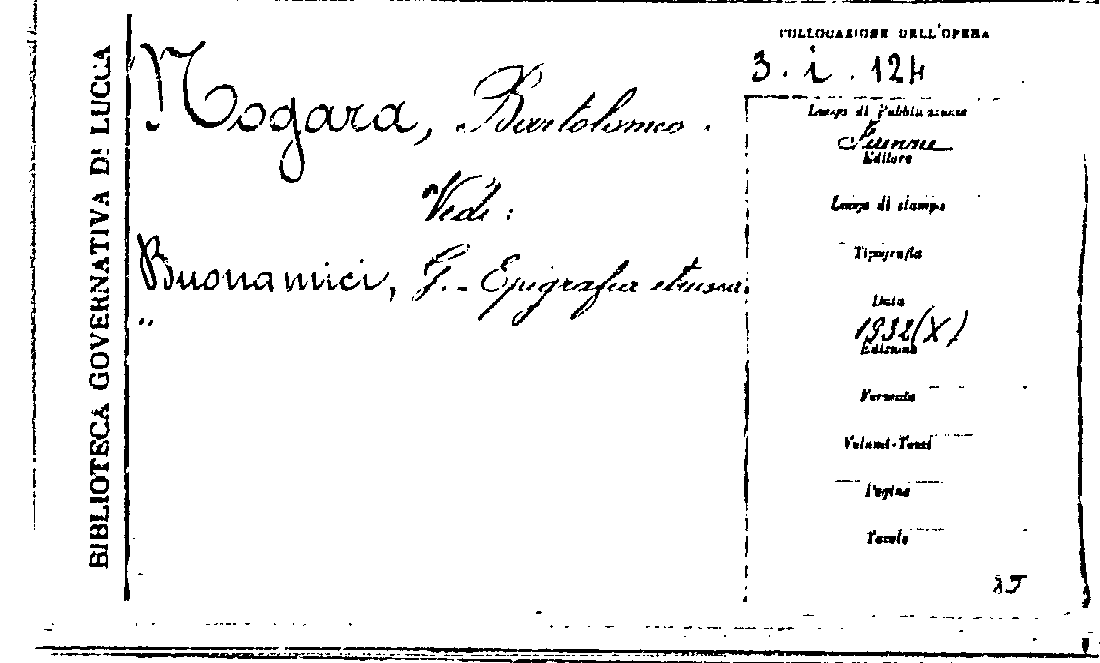 BIBLIOTECA GOVERNATIVA DI LUCCA
Nogara, Bartolomeo.
Vedi:
Buonamici, G. - Epigrafia etrusca.
"
COLLOCAZIONE DELL'OPERA
3. i. 124
Luogo di Pubblicazione
Firenze
Editore
Luogo di stampa
Tipografia
Data
1932 (X)
Edizione
Formato
Volumi-Tomi
Pagine
Tavole